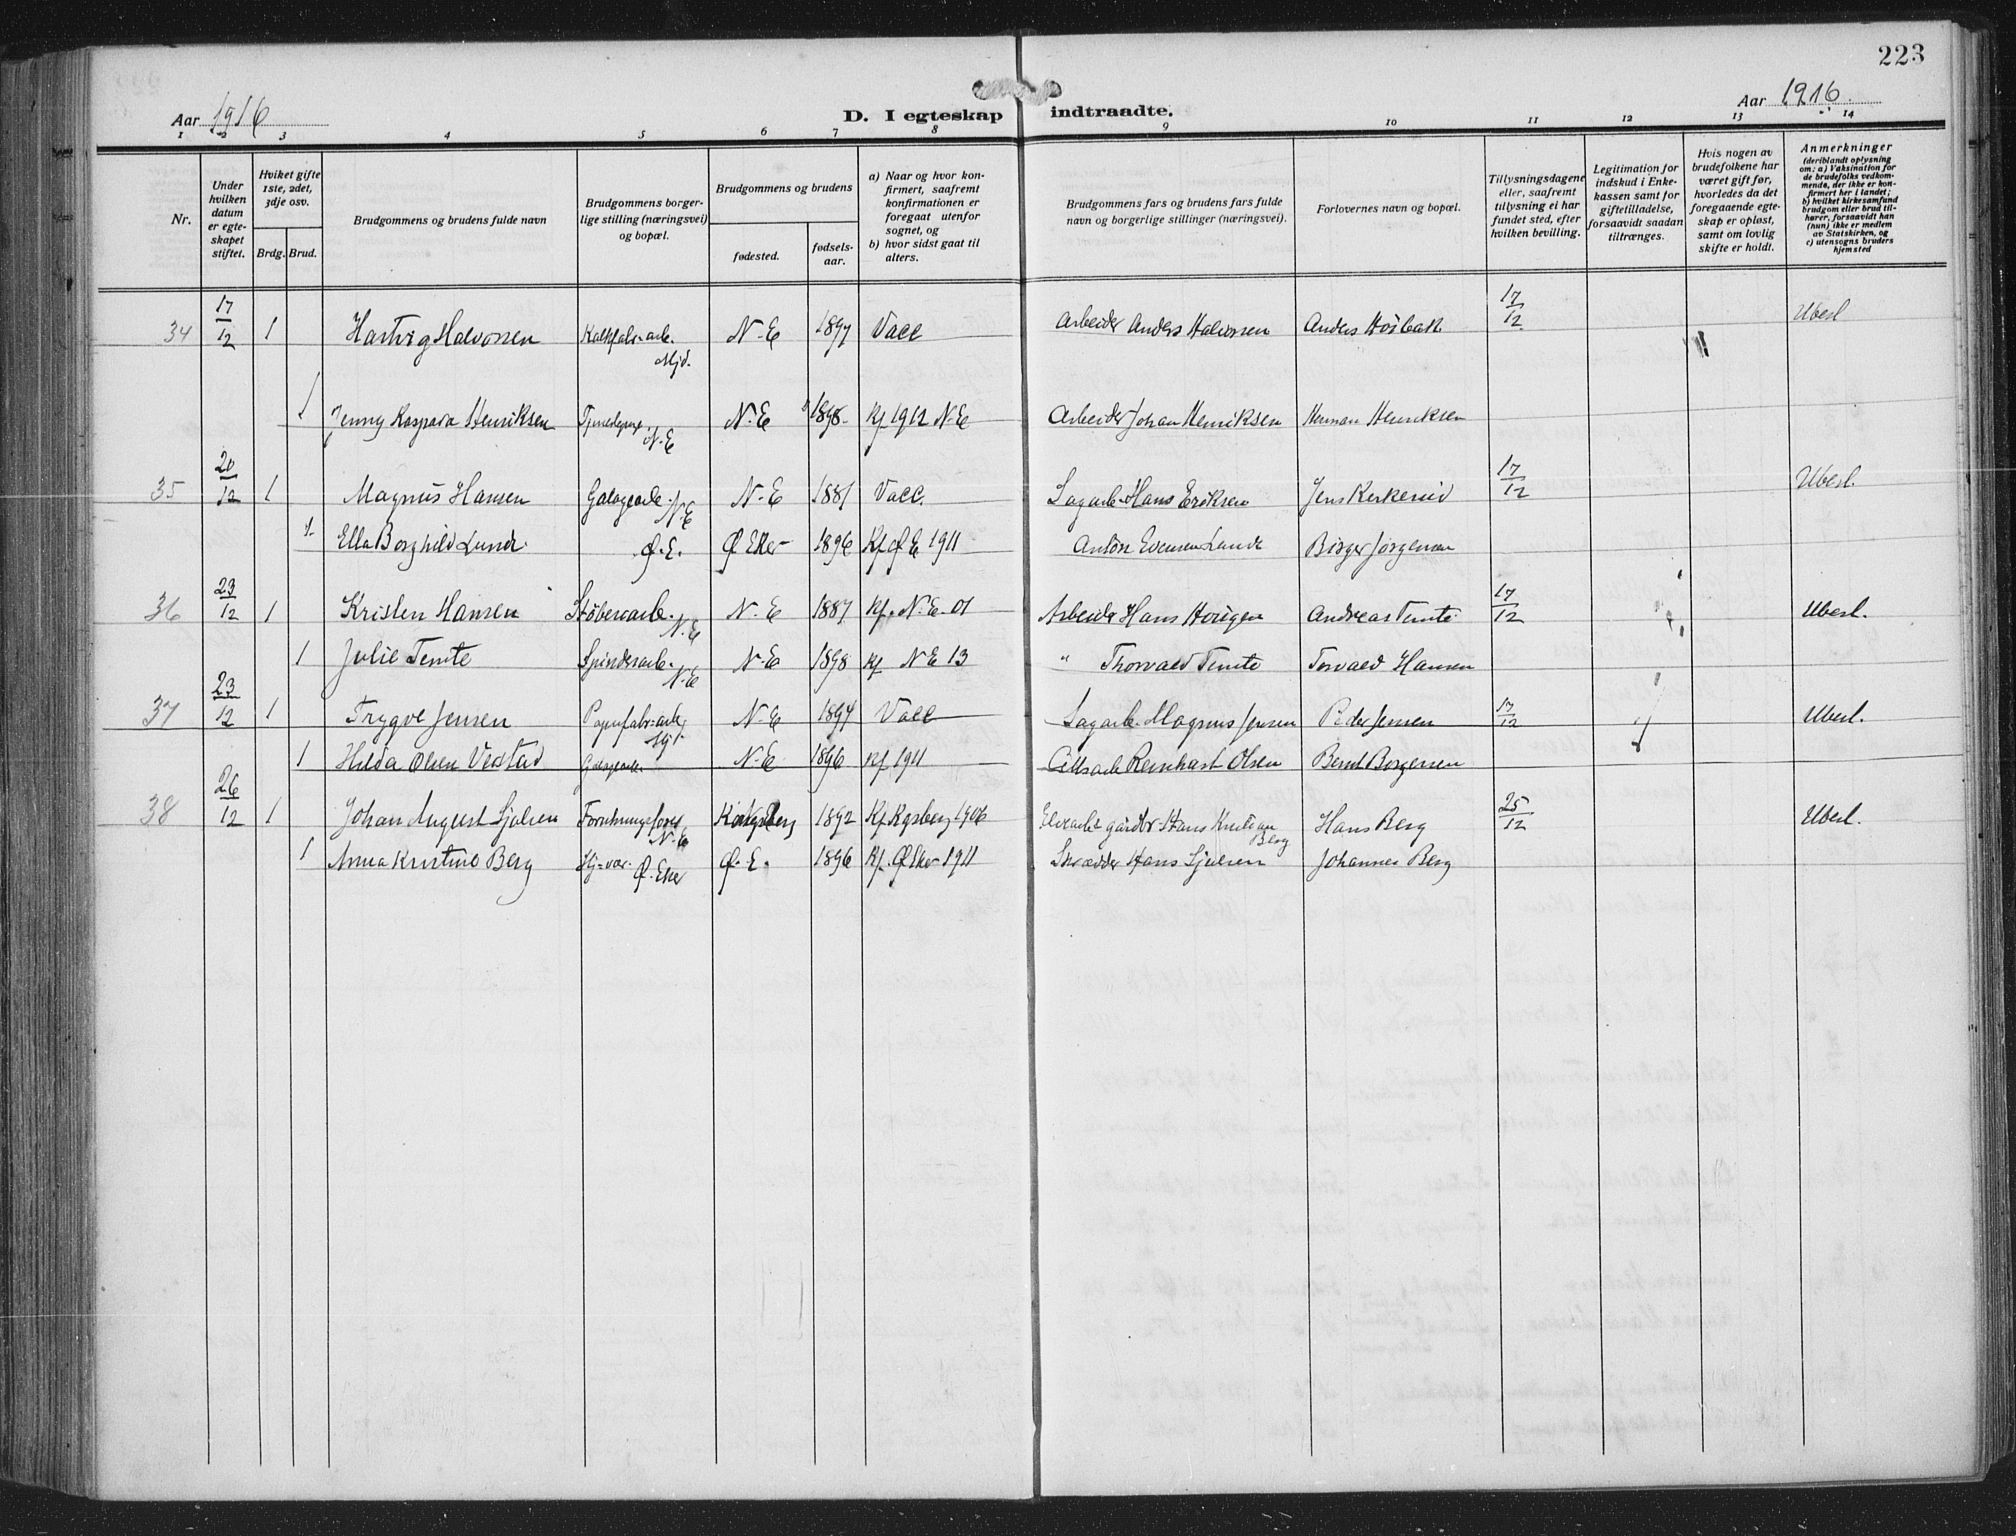 223
Aar 1916
D. I egteskap indtraadte.
Aar 1916.
1 2 3 4 5 6 7 8 9 10 11 12 13 14
Nr.
Under hvilken datum er egteskapet stiftet.
Hviket gifte 1ste, 2det, 3dje osv.
Brdg. Brud.
Brudgommens og brudens fulde navn
Brudgommens borgerlige stilling (næringsvei) og bopæl.
Brudgommens og brudens
fødested.
fødselsaar.
a) Naar og hvor konfirmert, saafremt konfirmationen er foregaat utenfor sognet, og
b) hvor sidst gaat til alters.
Brudgommens fars og brudens fars fulde navn og borgerlige stillinger (næringsvei).
Forlovernes navn og bopæl.
Tillysningsdagene eller, saafremt tillysning ei har fundet sted, efter hvilken bevilling.
Legitimation for indskud i Enkekassen samt for giftetilladelse, forsaavidt saadan tiltrænges.
Hvis nogen av brudefolkene har været gift før, hvorledes da det foregaaende egteskap er opløst, samt om lovlig skifte er holdt.
Anmerkninger
(deriblandt oplysning om: a) Vaksination for de brudefolks vedkommende, der ikke er konfirmert her i landet; b) hvilket kirkesamfund brudgom eller brud tilhører, forsaavidt han (hun) ikke er medlem av Statskirken, og c) utensogns bruders hjemsted
34 17/12 1 Hartvig Halvorsen Kalkfabr.arb. Mjd. N-E 1897 Vacc Arbeider Anders Halvorsen Anders Hoibak 17/12 Ubesl
1 Jenny Kaspara Henriksen N.E N.E 1898. Kf 1912 N-E Arbeider Johan Henriksen Herman Henriksen
35 20/12 1 Magnus Hansen N-E N-E 1881 Vacc. Sagarb. Hans Eriksen Jens Kerkerud 17/12 Ubesl.
1 Ella Borghild Lunde Ø.E. Ø Eker 1896 Kf Ø E 1911 Anton Evensen Lunde Birger Jørgensen
36 23/12 1 Kristen Hansen Støberiarb. N.E N-E 1887 Kf. N.E. 01 Arbeider Hans Hougen Andreas Temte 17/12 Ubesl.
1 Julie Temte Spinderarb. N-E N-E 1898 Kf N E 13 " Thorvald Temte Torvald Hansen
37 23/12 1 Trygve Jensen Papirfabr.arb. Mj. N-E 1894 Vacc Sagarb. Magnus Jensen Peder Jensen 17/12 Ubesl.
1 Hilda Olsen Vestad N-E 1896 Kf 1911 Reinhart Olsen Bernt Borgersen
38 26/12 1 Johan August Sjølsen N.E Kongsberg 1892 Kf Kgsberg 1906 Hans Kristian Berg Hans Berg 25/12 Ubesl.
1 Anna Kristine Berg Hj-vær. Ø.Eker Ø.E. 1896 Kf. Ø Eker 1911 Skrædder Hans Sjølsen Johannes Berg